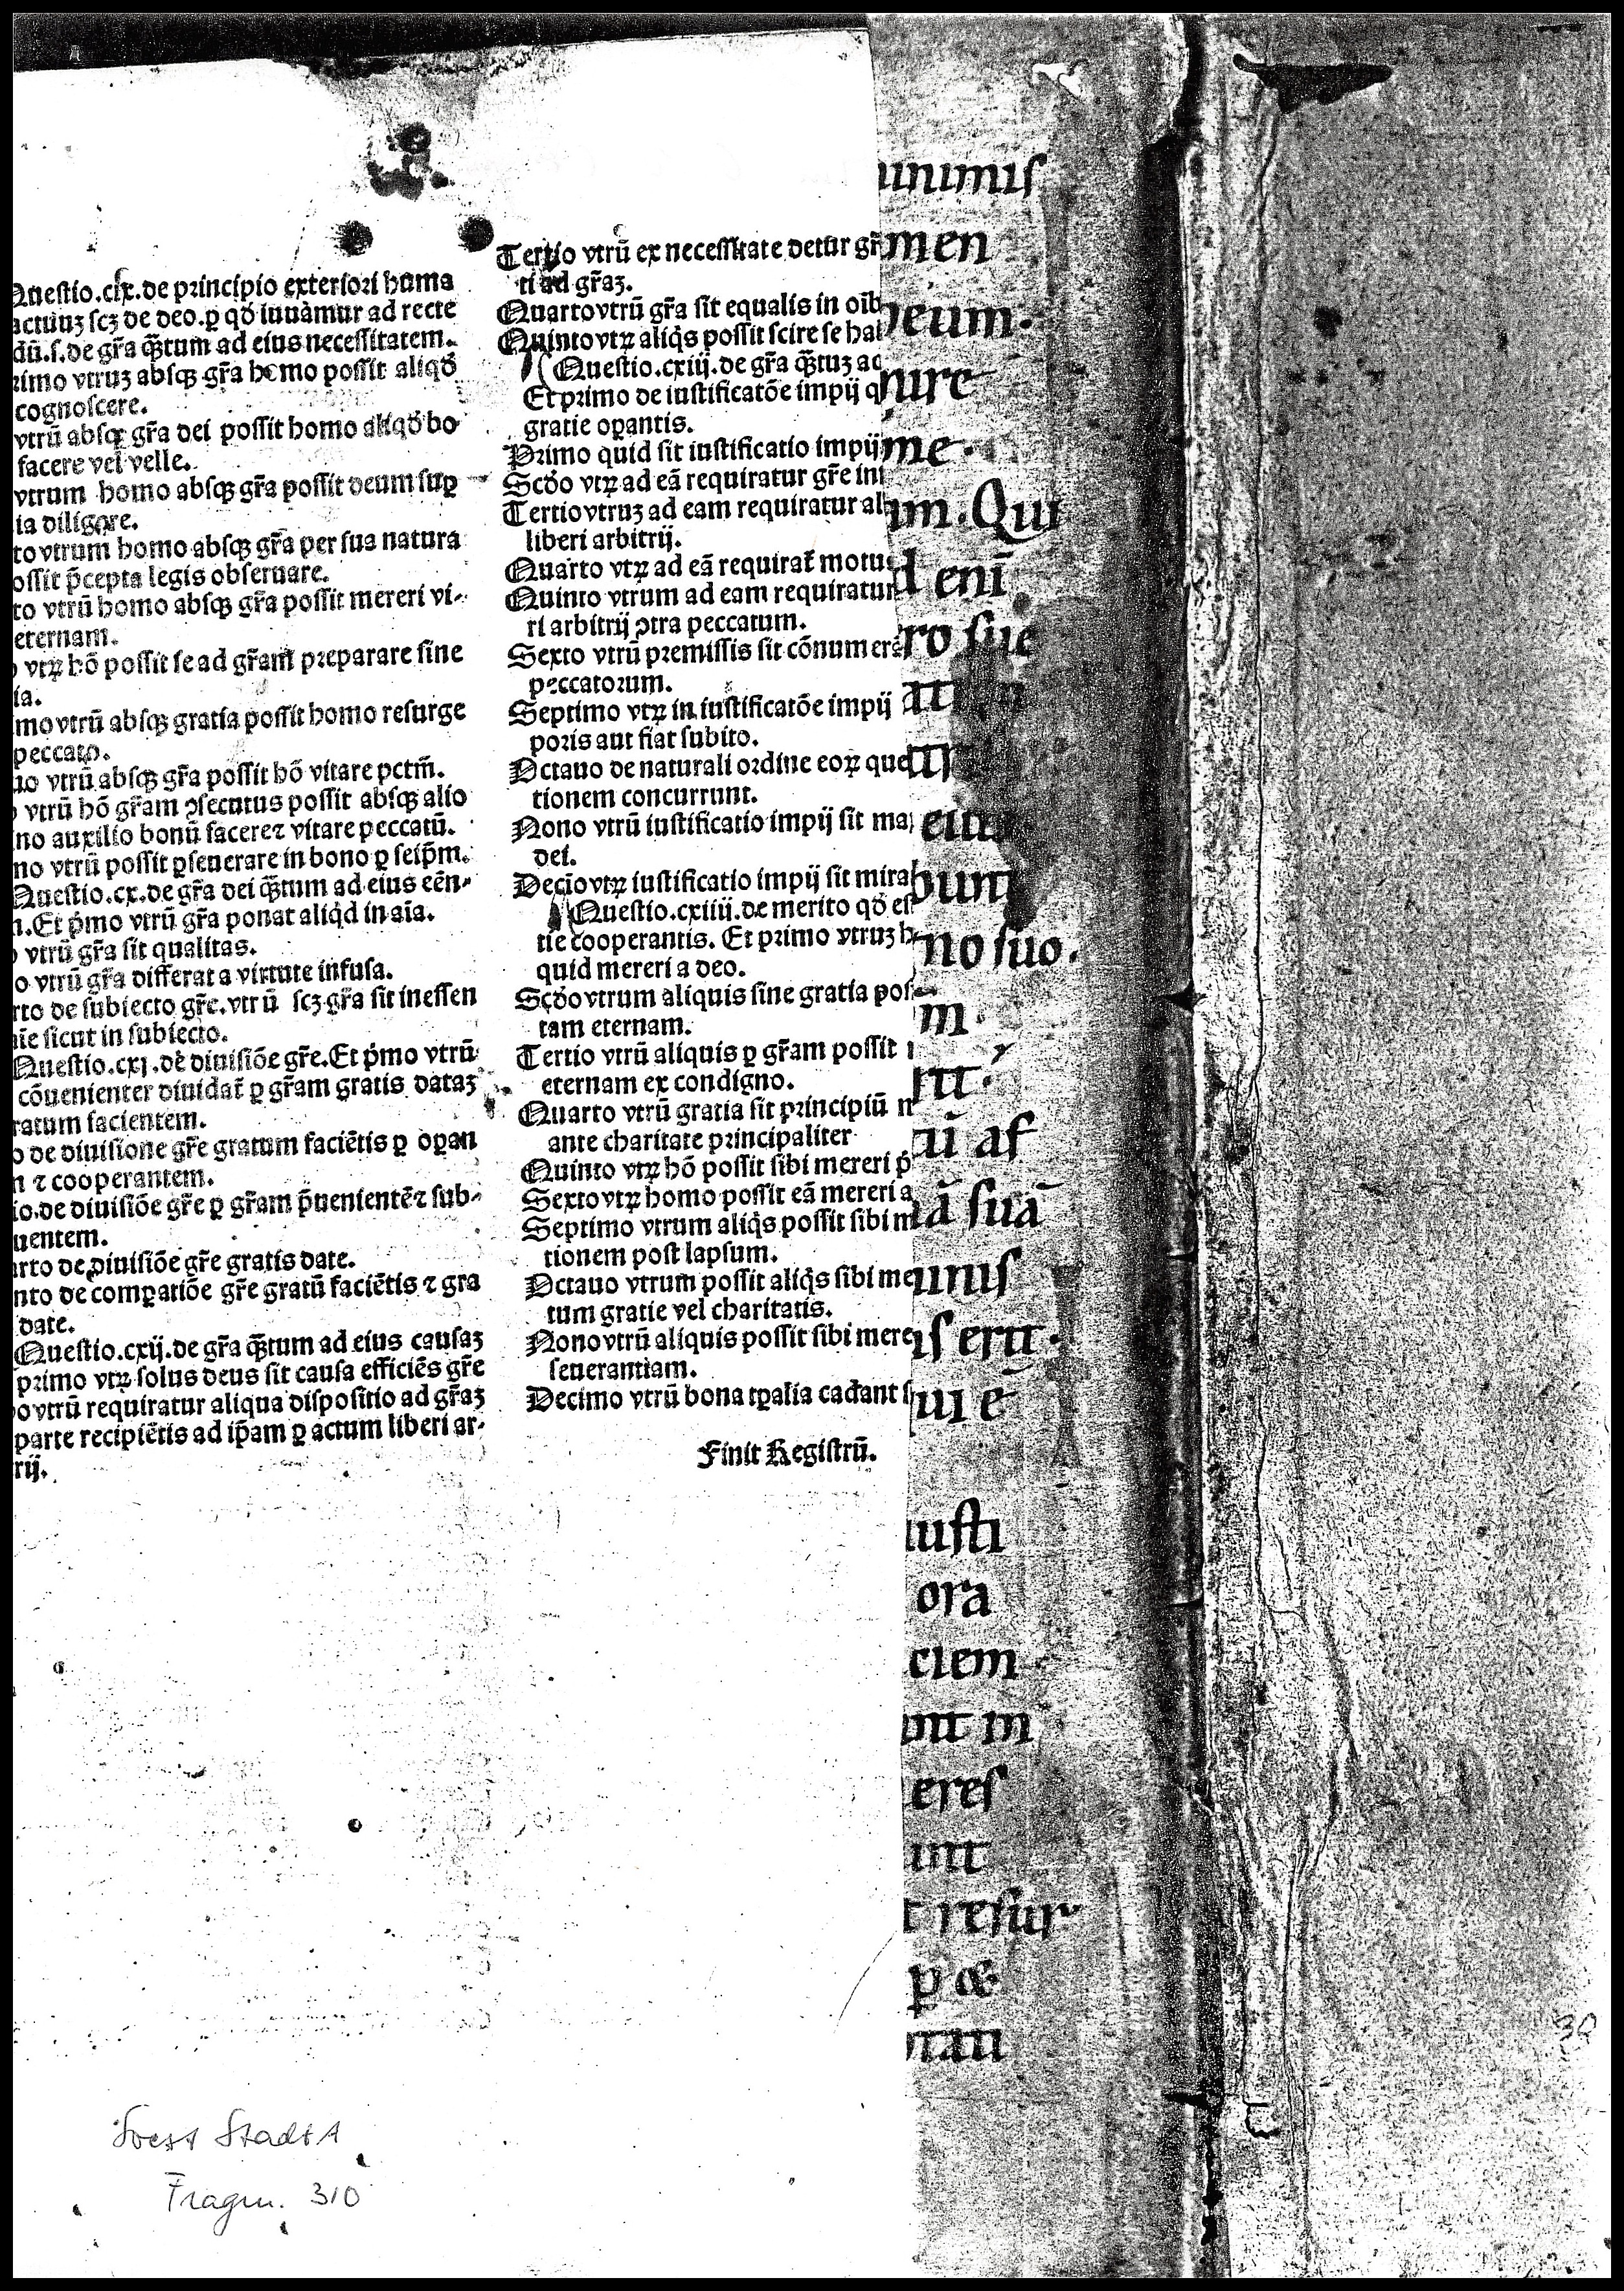 Questio.cix.de principio exteriori huma
actuuꝫ scꝫ de deo.ꝑ qď iuuamur ad recte
dū.s.de gr̄a q̄tum ad eius necessitatem.
rimo vtruꝫ absqꝫ gr̄a homo possit aliqď
cognoscere.
vtrū absqꝫ gr̄a dei possit homo aliqď bo
facere vel velle.
vtrum homo absqꝫ gr̄a possit deum suꝑ
ia diligere.
to vtrum homo absqꝫ gr̄a per sua natura
ossit p̄cepta legis obseruare.
to vtrū homo absqꝫ gr̄a possit mereri vi-
eternam.
o vtꝝ hō possit se ad gr̄am preparare sine
ia.
mo vtrū absqꝫ gratia possit homo resurge
peccato.
uo vtrū absqꝫ gr̄a possit hō vitare pctm̄.
o vtrū hō gr̄am ↄsecutus possit absqꝫ alio
no auxilio bonū facere ⁊ vitare peccatū.
no vtrū possit ꝑseuerare in bono ꝑ seip̄m.
Questio.cx.de gr̄a dei q̄tum ad eius eēn-
n.Et p̄mo vtrū gr̄a ponat aliqd in aīa.
o vtrū gr̄a sit qualitas.
o vtrū gr̄a differat a virtute infusa.
rto de subiecto gr̄e.vtrū scꝫ gr̄a sit in essen
aīe sicut in subiecto.
Questio.cxj.de diuisiōe gr̄e.Et p̄mo vtrū
cōuenienter diuidat̄ ꝑ gr̄am gratis dataꝫ
ratum facientem.
o de diuisione gr̄e gratum faciētis ꝑ oꝑan
n ⁊ cooperantem.
io.de diuisiōe gr̄e ꝑ gr̄am p̄uenientē ⁊ sub-
uentem.
arto de diuisiōe gr̄e gratis date.
nto de comꝑatiōe gr̄e gratū faciētis ⁊ gra
date.
Questio.cxij.de gr̄a q̄tum ad eius causaꝫ
primo vtꝝ solus deus sit causa efficiēs gr̄e
o vtrū requiratur aliqua dispositio ad gr̄aꝫ
parte recipiētis ad ip̄am ꝑ actum liberi ar-
rij.
Tertio vtrū ex necessitate detur gr̄
ti ad gr̄aꝫ.
Quarto vtrū gr̄a sit equalis in oīb
Quinto vtꝝ aliqs possit scire se hab
Questio.cxiij.de gr̄a q̄tuꝫ ad
Et primo de iustificatōe impij q
gratie oꝑantis.
Primo quid sit iustificatio impij
Scďo vtꝝ ad eā requiratur gr̄e inf
Tertio vtruꝫ ad eam requiratur al
liberi arbitrij.
Quarto vtꝝ ad eā requirat̄ motu
Quinto vtrum ad eam requiratur
ri arbitrij ↄtra peccatum.
Sexto vtrū premissis sit cōnumerā
peccatorum.
Septimo vtꝝ in iustificatōe impij
poris aut fiat subito.
Octauo de naturali ordine eoꝝ que
tionem concurrunt.
Nono vtrū iustificatio impij sit ma
dei.
Decīo vtꝝ iustificatio impij sit mira
Questio.cxiiij.de merito qď est
tie cooperantis. Et primo vtruꝫ h
quid mereri a deo.
Scďo vtrum aliquis sine gratia pos
tam eternam.
Tertio vtrū aliquis ꝑ gr̄am possit
eternam ex condigno.
Quarto vtrū gratia sit principiū m
ante charitate principaliter
Quinto vtꝝ hō possit sibi mereri p̄
Sexto vtꝝ homo possit eā mereri a
Septimo vtrum aliqs possit sibi m
tionem post lapsum.
Octauo vtrum possit aliqs sibi me
tum gratie vel charitatis.
Nono vtrū aliquis possit sibi mere
seuerantiam.
Decimo vtrū bona tꝑalia cadant s
Finit Registrū.
inimis
men
eum.
nire
me.
m. Qui
d enī
ro sue
eius
bunt
no suo.
m.
ū af
ā suā
nis
s erit.
ui ē
iusti
ora
ciem
unt in
eres
unt
t resur
p &
tati
30
Soest StadtA
Fragm. 310